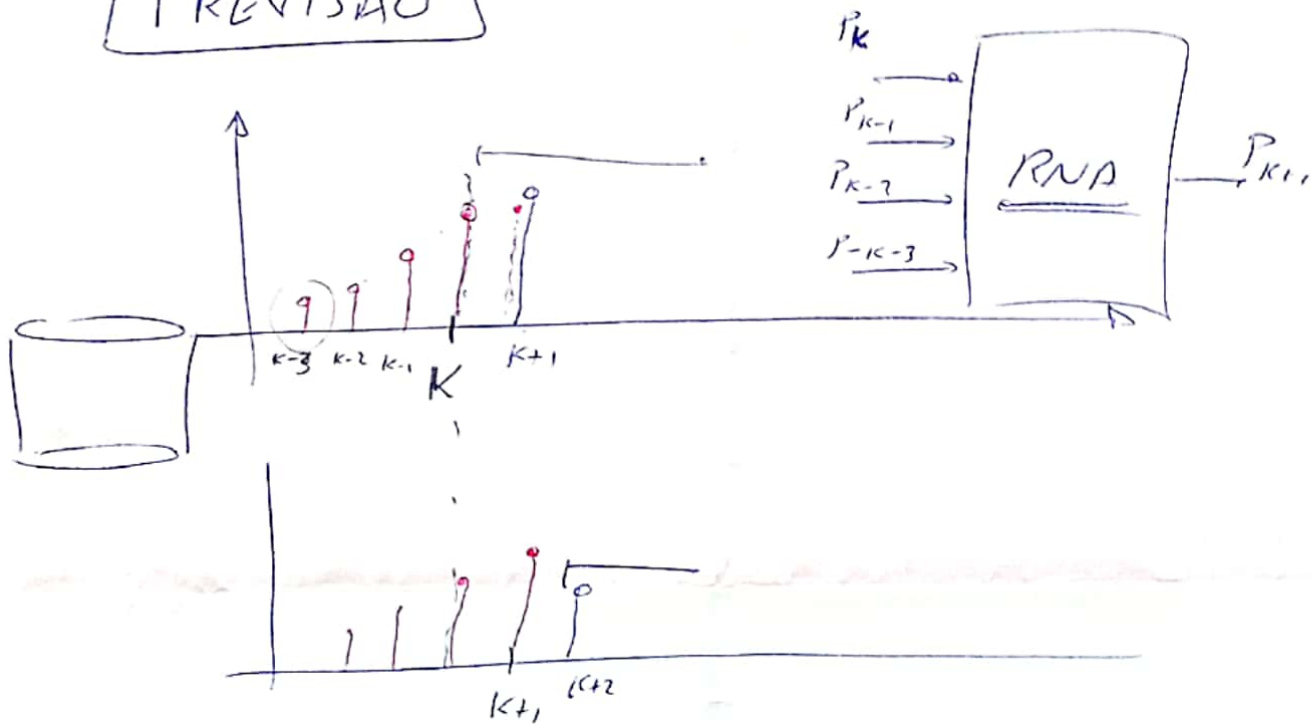 PREVISÃO
PK
PK-1
PK-2
P-K-3
RNA
PK+1
K-3 K-2 K-1 K K+1
K+1 K+2